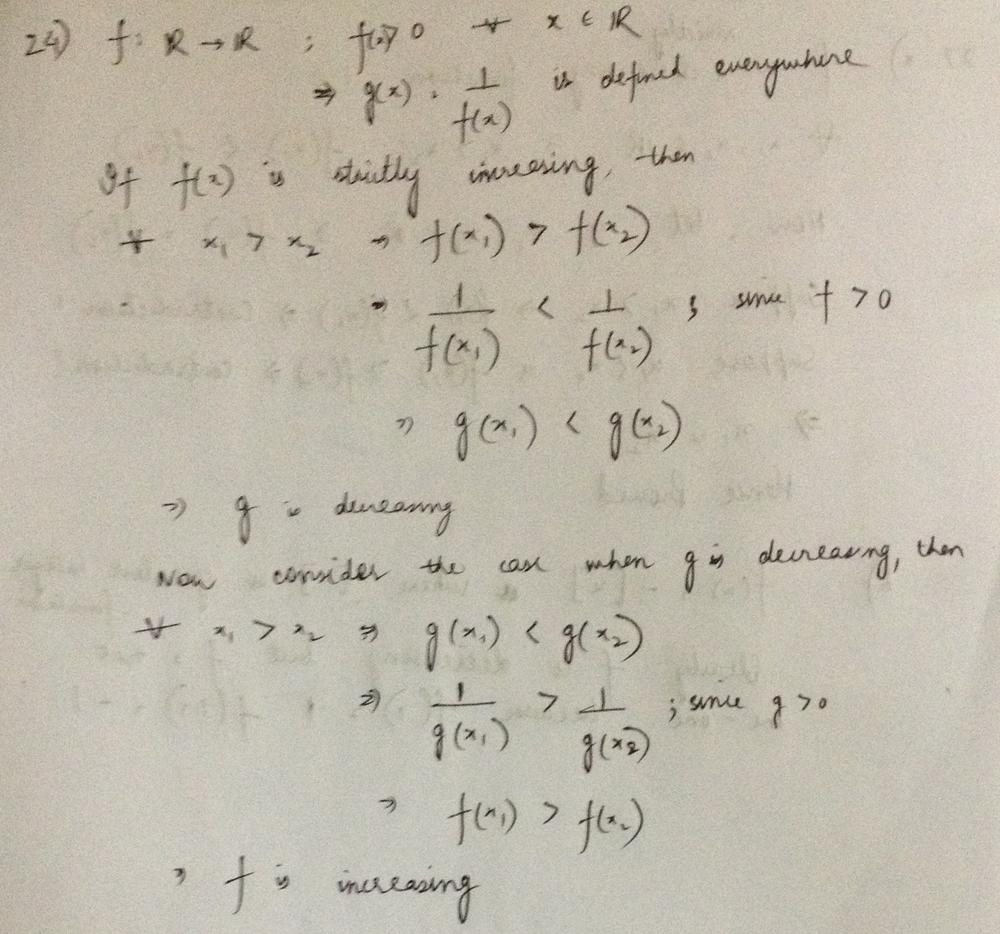 24) f: ℝ → ℝ ; f(x)>0 ∀ x ∈ ℝ
⇒ g(x) = 1/f(x) is defined everywhere
If f(x) is strictly increasing, then
∀ x₁ > x₂ ⇒ f(x₁) > f(x₂)
⇒ 1/f(x₁) < 1/f(x₂) ; since f > 0
⇒ g(x₁) < g(x₂)
⇒ g is decreasing
Now consider the case when g is decreasing, then
∀ x₁ > x₂ ⇒ g(x₁) < g(x₂)
⇒ 1/g(x₁) > 1/g(x₂) ; since g > 0
⇒ f(x₁) > f(x₂)
⇒ f is increasing